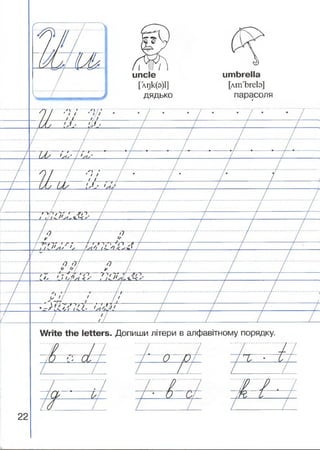 U u
uncle umbrella
['ʌŋk(ə)l] [ʌm'brelə]
дядько парасоля
U U U
u u u
U u U u
mouse
a blue house
Stand up!
Write the letters. Допиши літери в алфавітному порядку.
b c d · o p r · t
g · i · b c k l ·
22